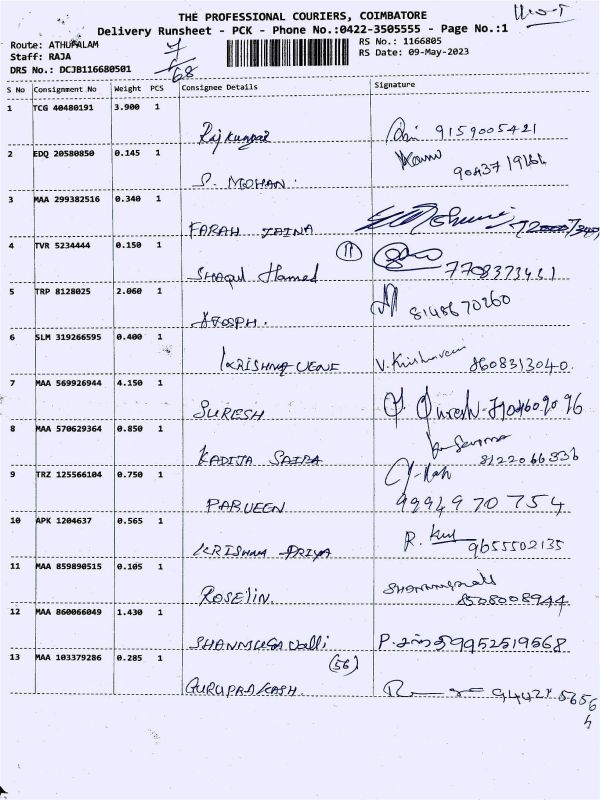 THE PROFESSIONAL COURIERS, COIMBATORE
Delivery Runsheet - PCK - Phone No.:0422-3505555 - Page No.:1
Route: ATHUPALAM RS No.: 1166805
Staff: RAJA RS Date: 09-May-2023
DRS No.: DCJB116680501
68
S No Consignment No Weight PCS Consignee Details Signature
1 TCG 40480191 3.900 1
Rajkumar 9159005421
2 EDQ 20580850 0.145 1
S. MOHAN
3 MAA 299382516 0.340 1
FARAH ZAINA
4 TVR 5234444 0.150 1 11
Shaqul Hamed 7708373461
5 TRP 8128025 2.060 1
8148670260
6 SLM 319266595 0.400 1
KRISHNA VENE V. Krishnaveni 8608313040.
7 MAA 569926944 4.150 1
SURESH
8 MAA 570629364 0.850 1
KADIJA SAIRA 8122066336
9 TRZ 125566104 0.750 1
PARVEEN 9994970754
10 APK 1204637 0.565 1
KRISHNA PRIYA R. 9655502135
11 MAA 859890515 0.105 1
ROSELIN. 8508008944
12 MAA 860066049 1.430 1
SHANMUGA Valli 9952519568
13 MAA 103379286 0.285 1 (56)
GURUPRAKASH.